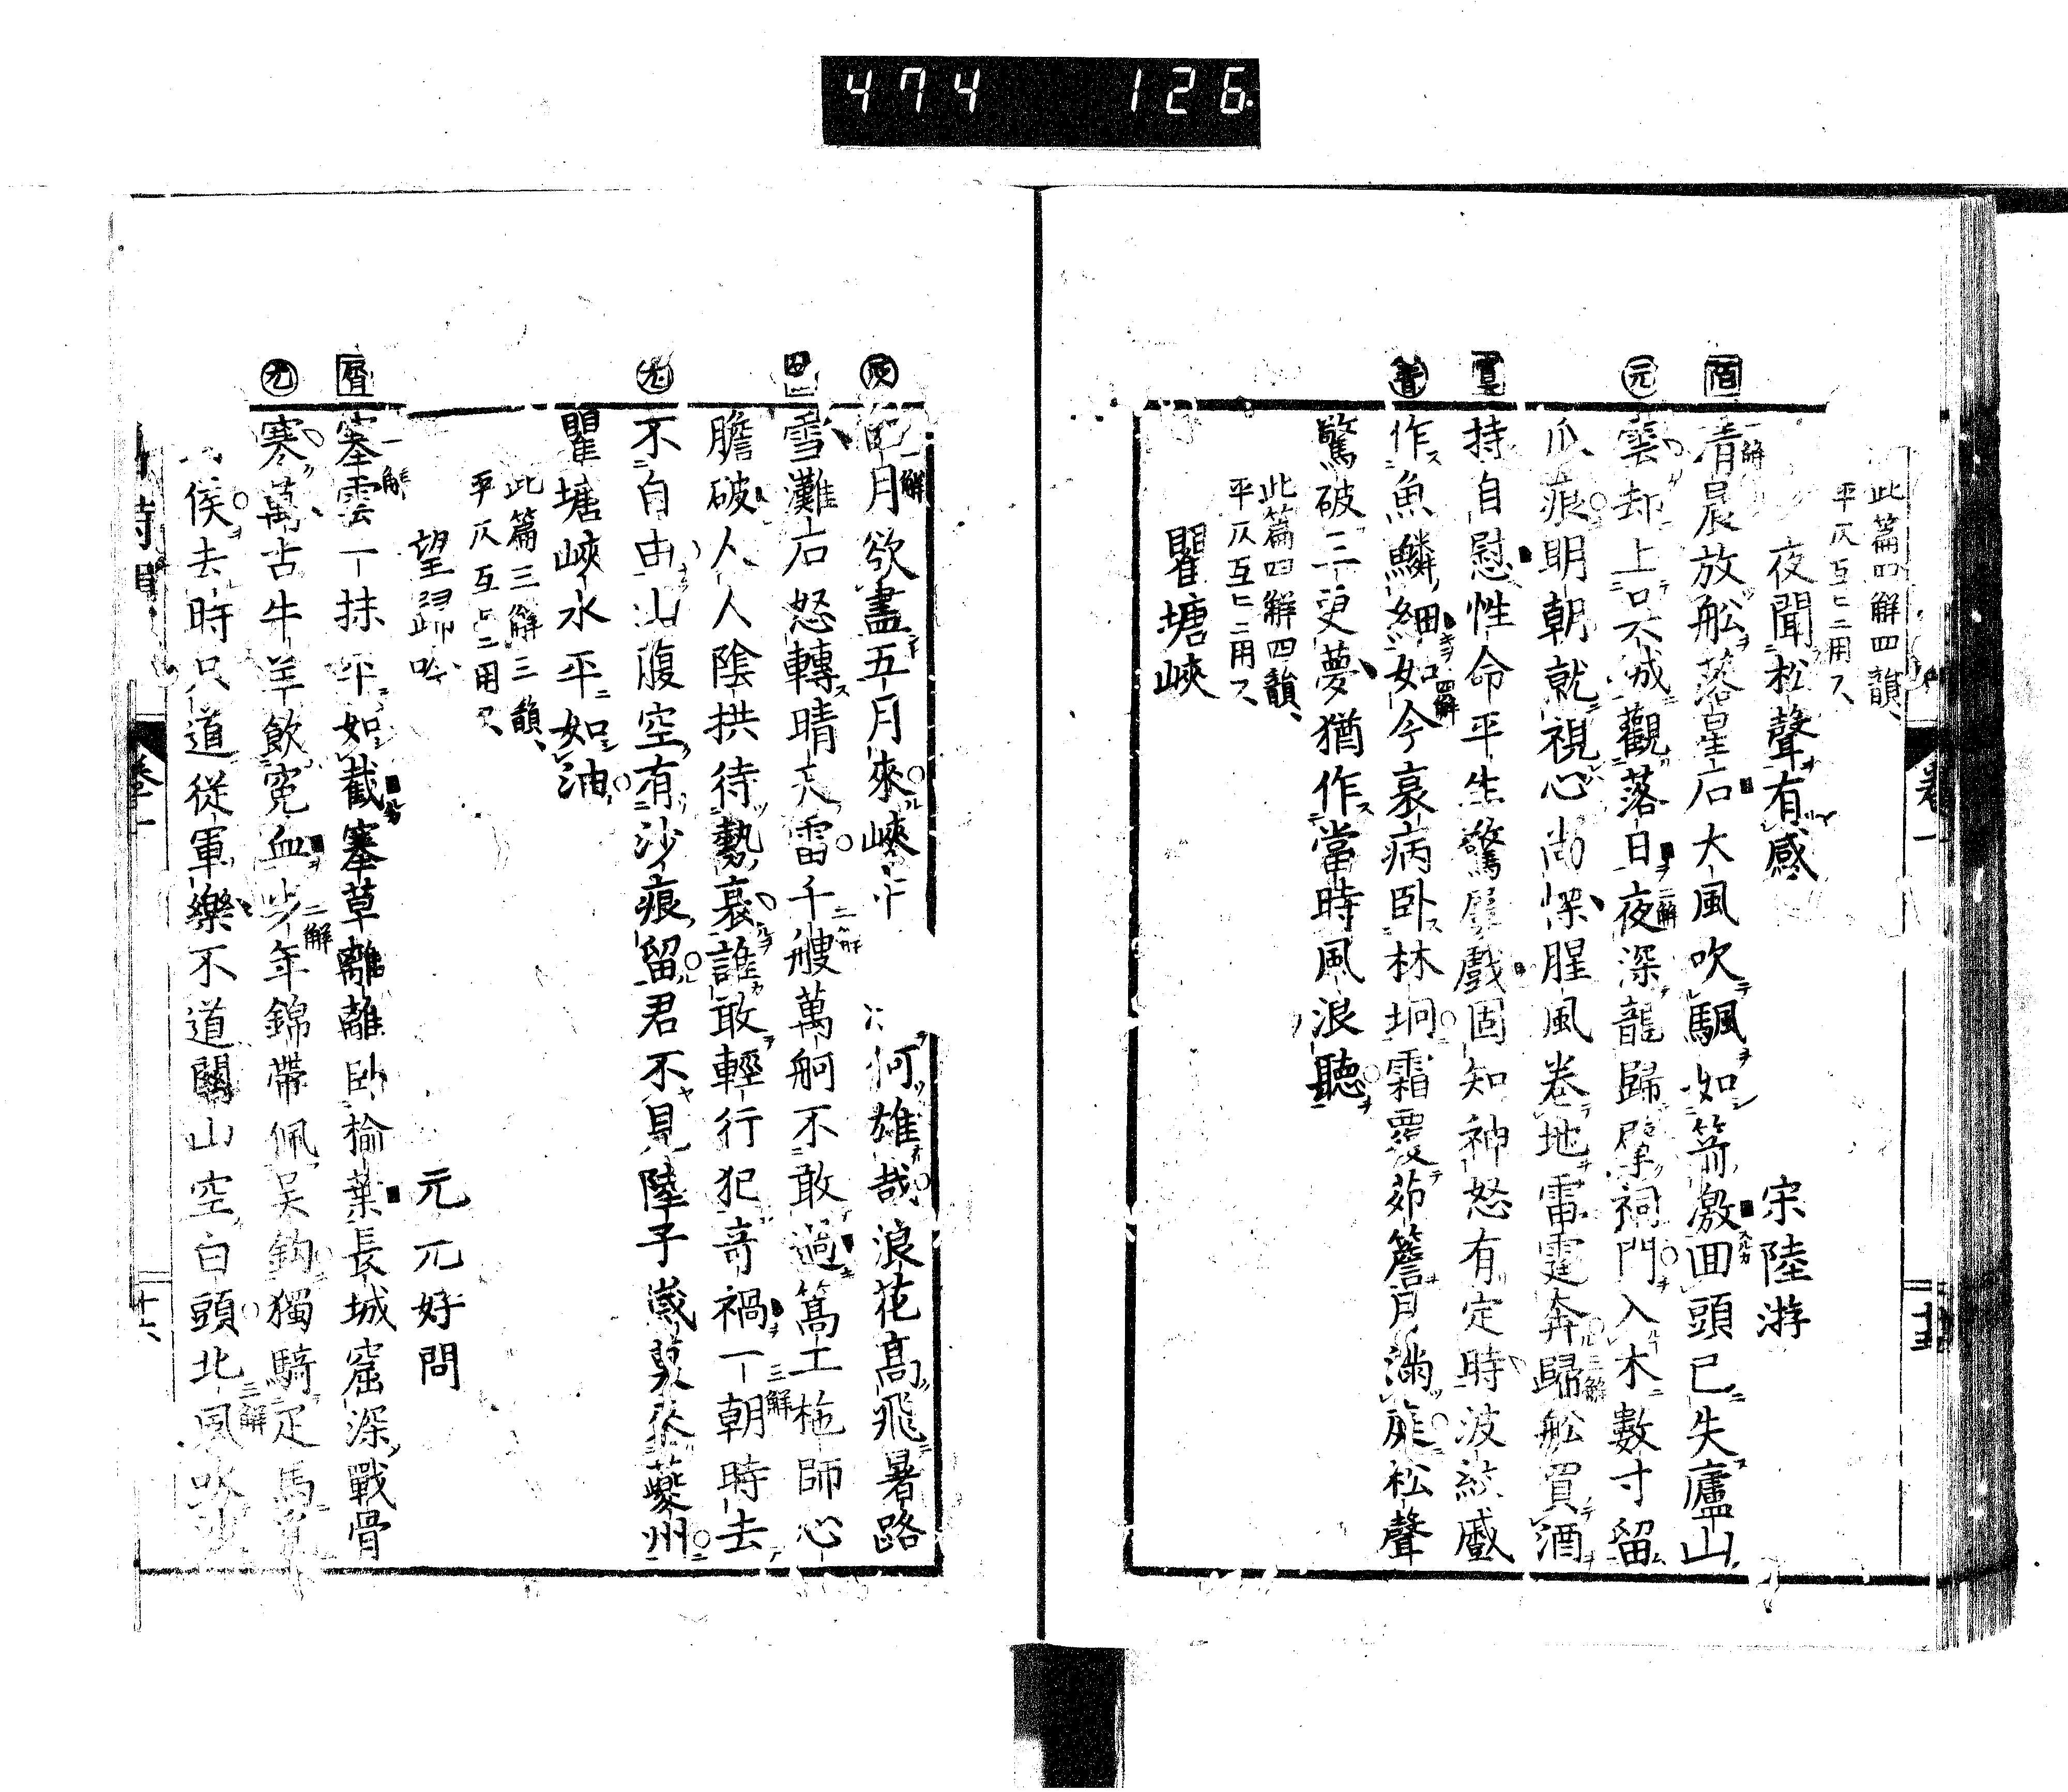 474 126
此篇四解四韻、
平仄互ヒニ用フ、
夜聞松聲有感 宋陸游
清晨放船落星石大風吹颿如箭激回頭已失廬山
雲却上吳城觀落日夜深龍歸擘祠門入木數寸留
爪痕明朝就視心尚慄腥風卷地雷霆奔歸船買酒
持自慰性命平生驚屢戲固知神怒有定時波紋蹙
作魚鱗細如今衰病卧林坰霜覆茆簷月滿庭松聲
驚破三更夢猶作當時風浪聽
此篇四解四韻、
平仄互ヒニ用フ、
瞿塘峽
四月欲盡五月來峽中 何雄哉浪花高飛暑路
雪灘石怒轉晴天雷千艘萬舸不敢過篙工柂師心
膽破人人陰拱待勢衰誰敢輕行犯奇禍一朝時去
不自由山腹空有沙痕留君不見陸子歲暮來夔州
瞿塘峽水平如油
此篇三解三韻、
平仄互ヒニ用フ、
望歸吟 元元好問
塞雲一抹平如截塞草離離卧榆葉長城窟深戰骨
寒萬古牛羊飲冤血少年錦帶佩吳鈎獨騎疋馬覓
侯去時只道從軍樂不道關山空白頭北風吹沙
卷一
十六